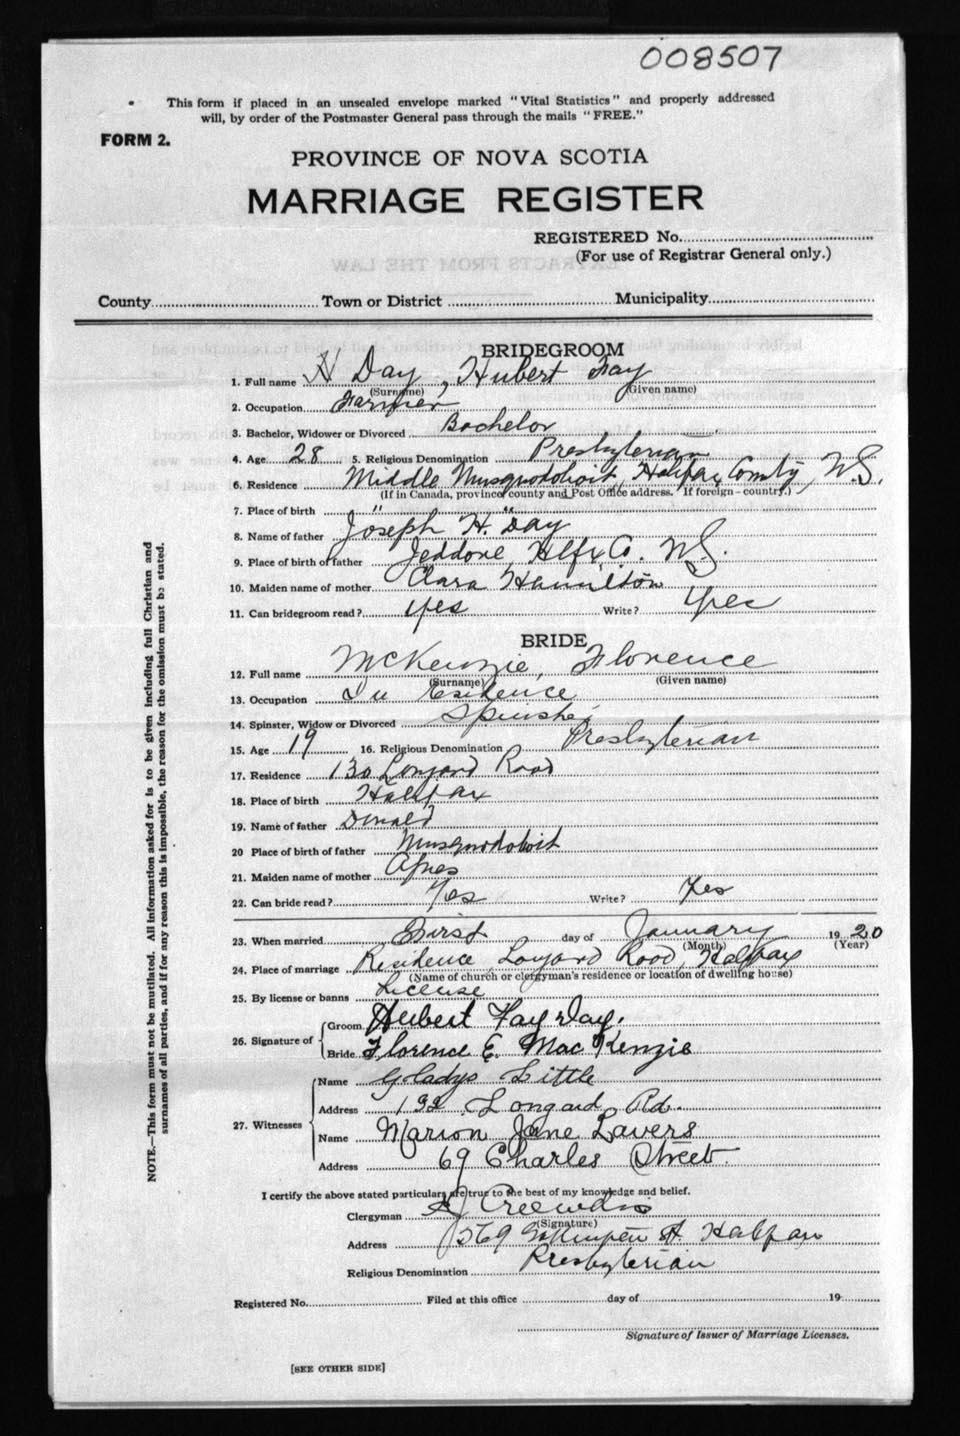 008507
This form if placed in an unsealed envelope marked "Vital Statistics" and properly addressed
will, by order of the Postmaster General pass through the mails "FREE."
FORM 2.
PROVINCE OF NOVA SCOTIA
MARRIAGE REGISTER
REGISTERED No.
(For use of Registrar General only.)
County Town or District Municipality
BRIDEGROOM
1. Full name H Day, Hubert Fay
(Surname) (Given name)
2. Occupation Farmer
3. Bachelor, Widower or Divorced Bachelor
4. Age 28 5. Religious Denomination Presbyterian
6. Residence Middle Musquodoboit, Halifax County, N.S.
(If in Canada, province county and Post Office address. If foreign-country.)
7. Place of birth " "
8. Name of father Joseph H. Day
9. Place of birth of father Jeddore, Hlfx Co. N.S.
10. Maiden name of mother Clara Hamilton
11. Can bridegroom read? Yes Write? Yes
BRIDE
12. Full name McKenzie, Florence
(Surname) (Given name)
13. Occupation In Residence
14. Spinster, Widow or Divorced Spinster
15. Age 19 16. Religious Denomination Presbyterian
17. Residence 130 Longard Road
18. Place of birth Halifax
19. Name of father Donald
20 Place of birth of father Musquodoboit
21. Maiden name of mother Agnes
22. Can bride read? Yes Write? Yes
23. When married First day of January 1920
(Month) (Year)
24. Place of marriage Residence, Longard Road, Halifax
(Name of church or clergyman's residence or location of dwelling house)
25. By license or banns License
26. Signature of Groom Hubert Fay Day.
Bride Florence E. MacKenzie
27. Witnesses Name Gladys Little
Address 132 Longard Rd.
Name Marion Jane Lavers
Address 69 Charles Street.
I certify the above stated particulars are true to the best of my knowledge and belief.
Clergyman
(Signature)
Address St. Halifax
Religious Denomination Presbyterian
Registered No. Filed at this office day of 19
Signature of Issuer of Marriage Licenses.
[SEE OTHER SIDE]
NOTE.—This form must not be mutilated. All information asked for is to be given including full Christian and
surnames of all parties, and if for any reason this is impossible, the reason for the omission must be stated.